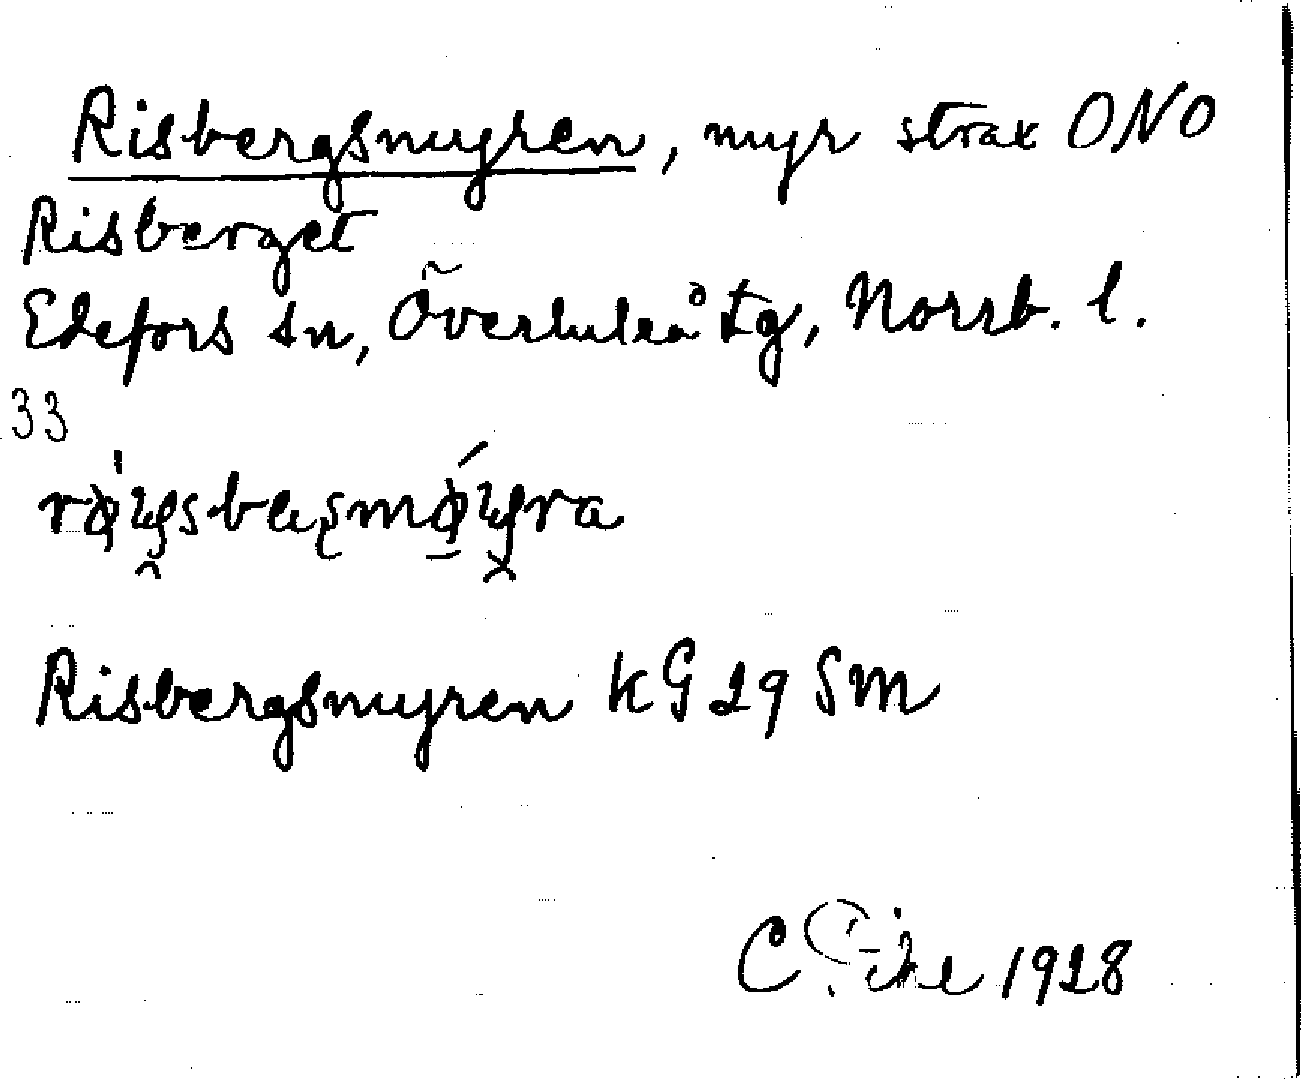 Risbergsmyren, myr strax ONO
Risberget
Edefors sn, Överluleå tg, Norrb. l.
33
Risbergsmyren kG 29 SM
C 1928